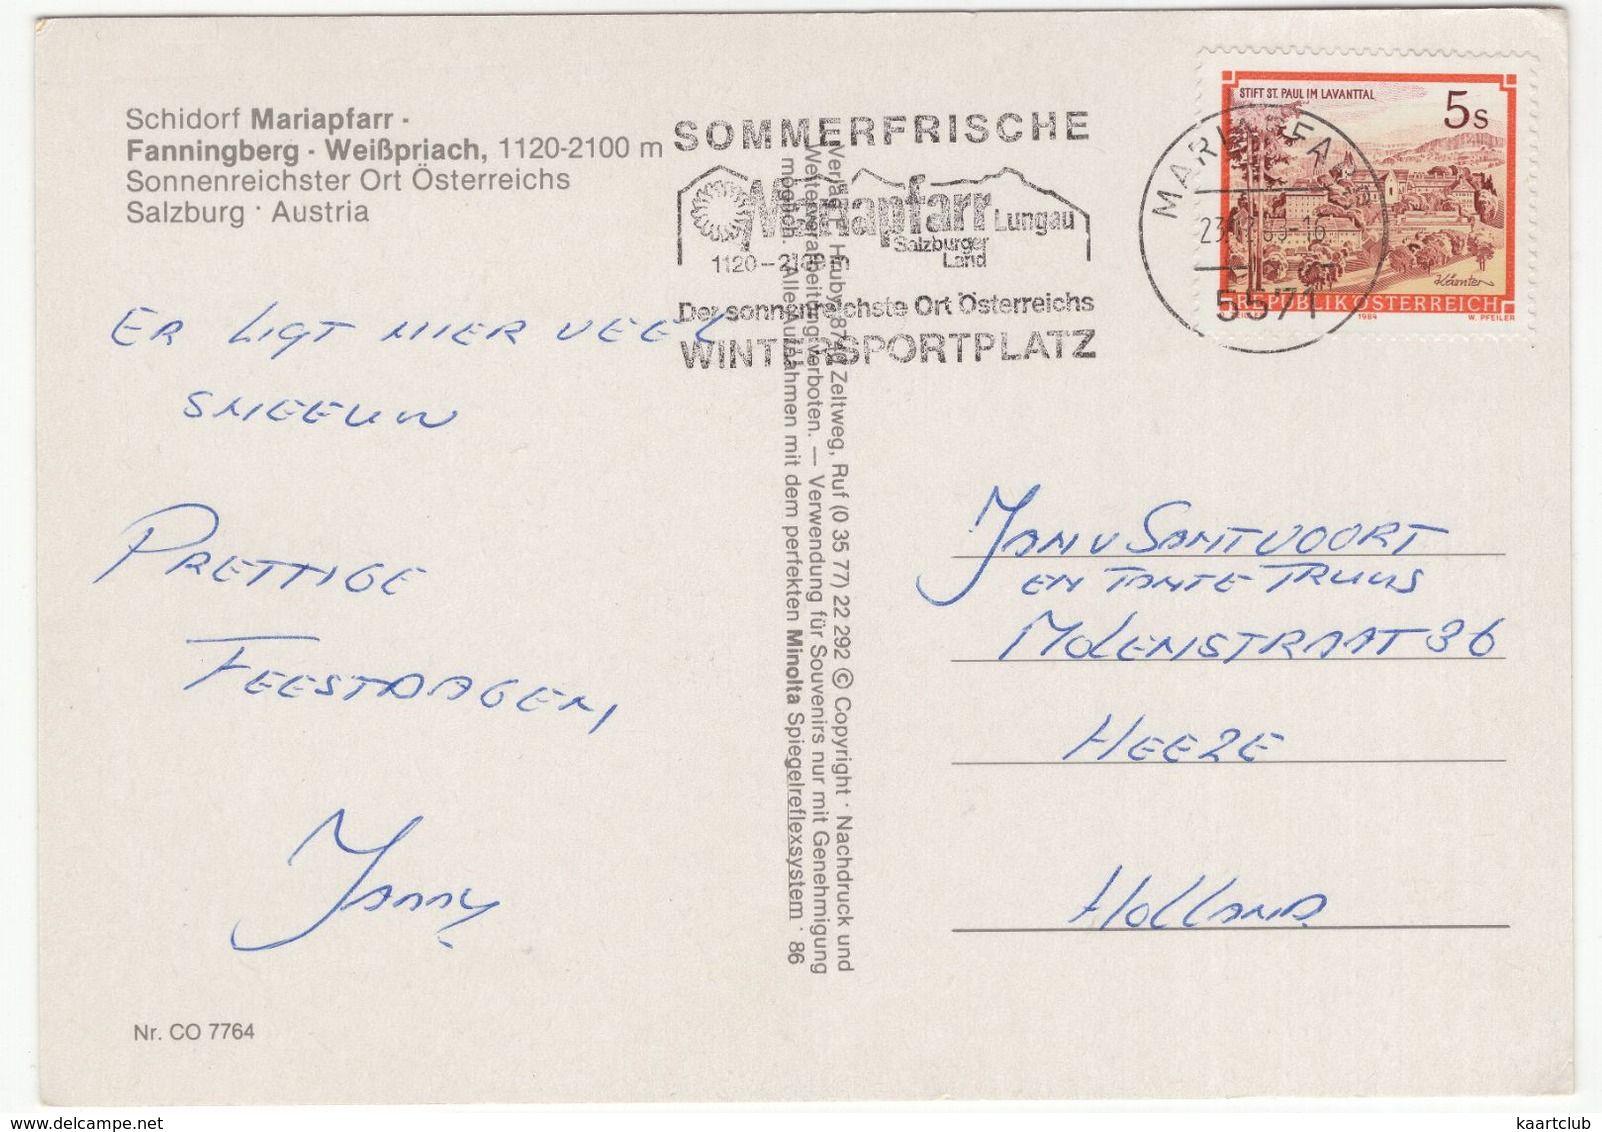 Schidorf Mariapfarr -
Fanningberg - Weißpriach, 1120-2100 m
Sonnenreichster Ort Österreichs
Salzburg · Austria
SOMMERFRISCHE
Mariapfarr Lungau
Salzburger
Land
1120 –
Der sonnenreichste Ort Österreichs
WINTERSPORTPLATZ
MARIAPFARR
5571
STIFT ST. PAUL IM LAVANTTAL
5s
Kärnten
REPUBLIK ÖSTERREICH
1984
W. PFEILER
ER LIGT HIER VEEL
SNEEUW
PRETTIGE
FEESTDAGEN,
JANNY
Nr. CO 7764
Verlag F. Hruby, 8740 Zeltweg, Ruf (0 35 77) 22 292 © Copyright · Nachdruck und
Weiterverarbeitung verboten. — Verwendung für Souvenirs nur mit Genehmigung
möglich. Alle Aufnahmen mit dem perfekten Minolta Spiegelreflexsystem · 86
JAN V SANTVOORT
EN TANTE TRUUS
MOLENSTRAAT 36
HEEZE
HOLLAND
kaartclub
www.delcampe.net